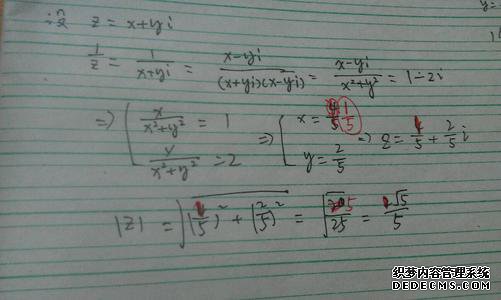 设 z = x+yi
y=
1/z = 1/(x+yi) = (x-yi)/((x+yi)(x-yi)) = (x-yi)/(x²+y²) = 1-2i
=> { x/(x²+y²) = 1 => { x = 1/5 => z = 1/5 + 2/5 i
y/(x²+y²) = 2 y = 2/5
|z| = √((1/5)² + (2/5)²) = √(5/25) = √5/5
织梦内容管理系统
DEDECMS.COM